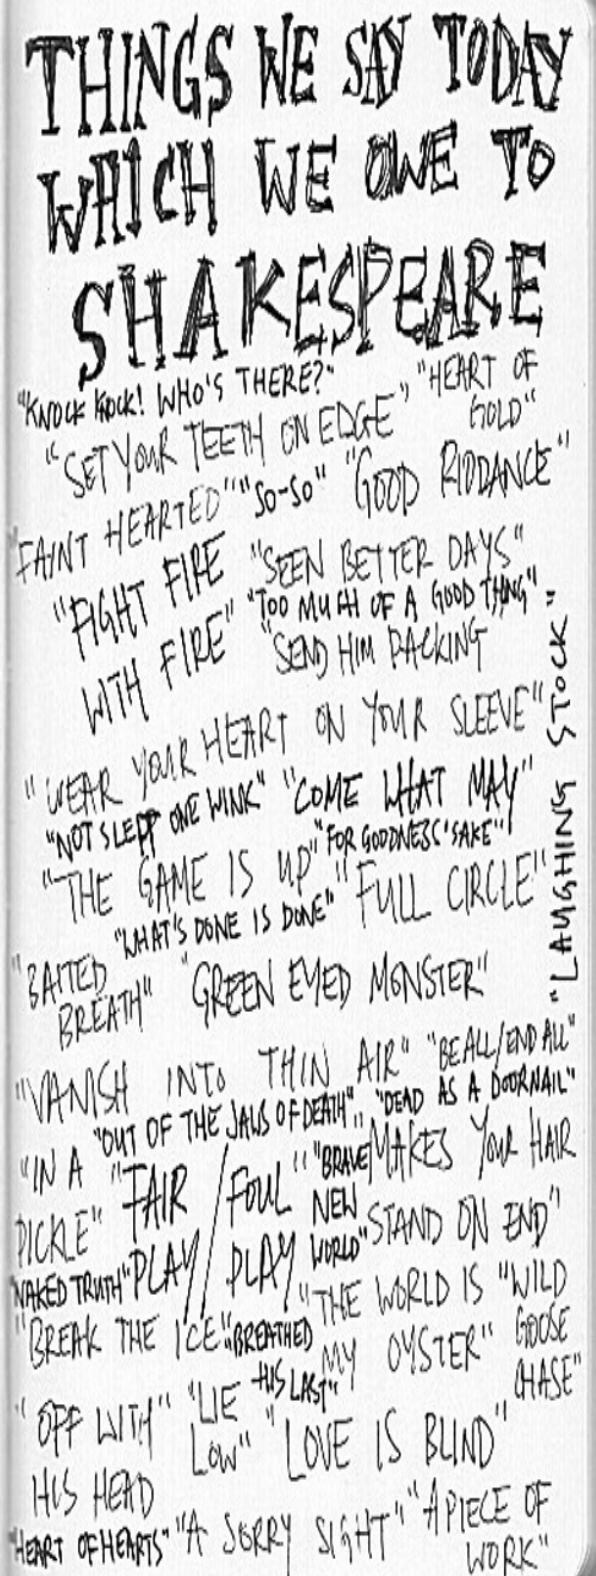 THINGS WE SAY TODAY
WHICH WE OWE TO
SHAKESPEARE
"KNOCK KNOCK! WHO'S THERE?" "HEART OF
GOLD"
"SET YOUR TEETH ON EDGE"
"FAINT HEARTED" "SO-SO" "GOOD RIDDANCE"
"FIGHT FIRE
WITH FIRE"
"SEEN BETTER DAYS"
"TOO MUCH OF A GOOD THING"
"SEND HIM PACKING
"LAUGHING STOCK"
"WEAR YOUR HEART ON YOUR SLEEVE"
"NOT SLEPT ONE WINK" "COME WHAT MAY"
"FOR GOODNESS' SAKE"
"THE GAME IS UP" "FULL CIRCLE"
"WHAT'S DONE IS DONE"
"BAITED
BREATH"
"GREEN EYED MONSTER"
"VANISH INTO THIN AIR" "BE ALL/END ALL"
"OUT OF THE JAWS OF DEATH" "DEAD AS A DOORNAIL"
"IN A
PICKLE"
"FAIR / FOUL
PLAY / PLAY
"BRAVE
NEW
WORLD"
MAKES YOUR HAIR
STAND ON END"
"NAKED TRUTH"
"THE WORLD IS
MY OYSTER"
"WILD
GOOSE
CHASE"
"BREAK THE ICE" "BREATHED
HIS LAST"
"OFF WITH"
HIS HEAD
"LIE
LOW"
"LOVE IS BLIND"
"HEART OF HEARTS" "A SORRY SIGHT" "A PIECE OF
WORK"